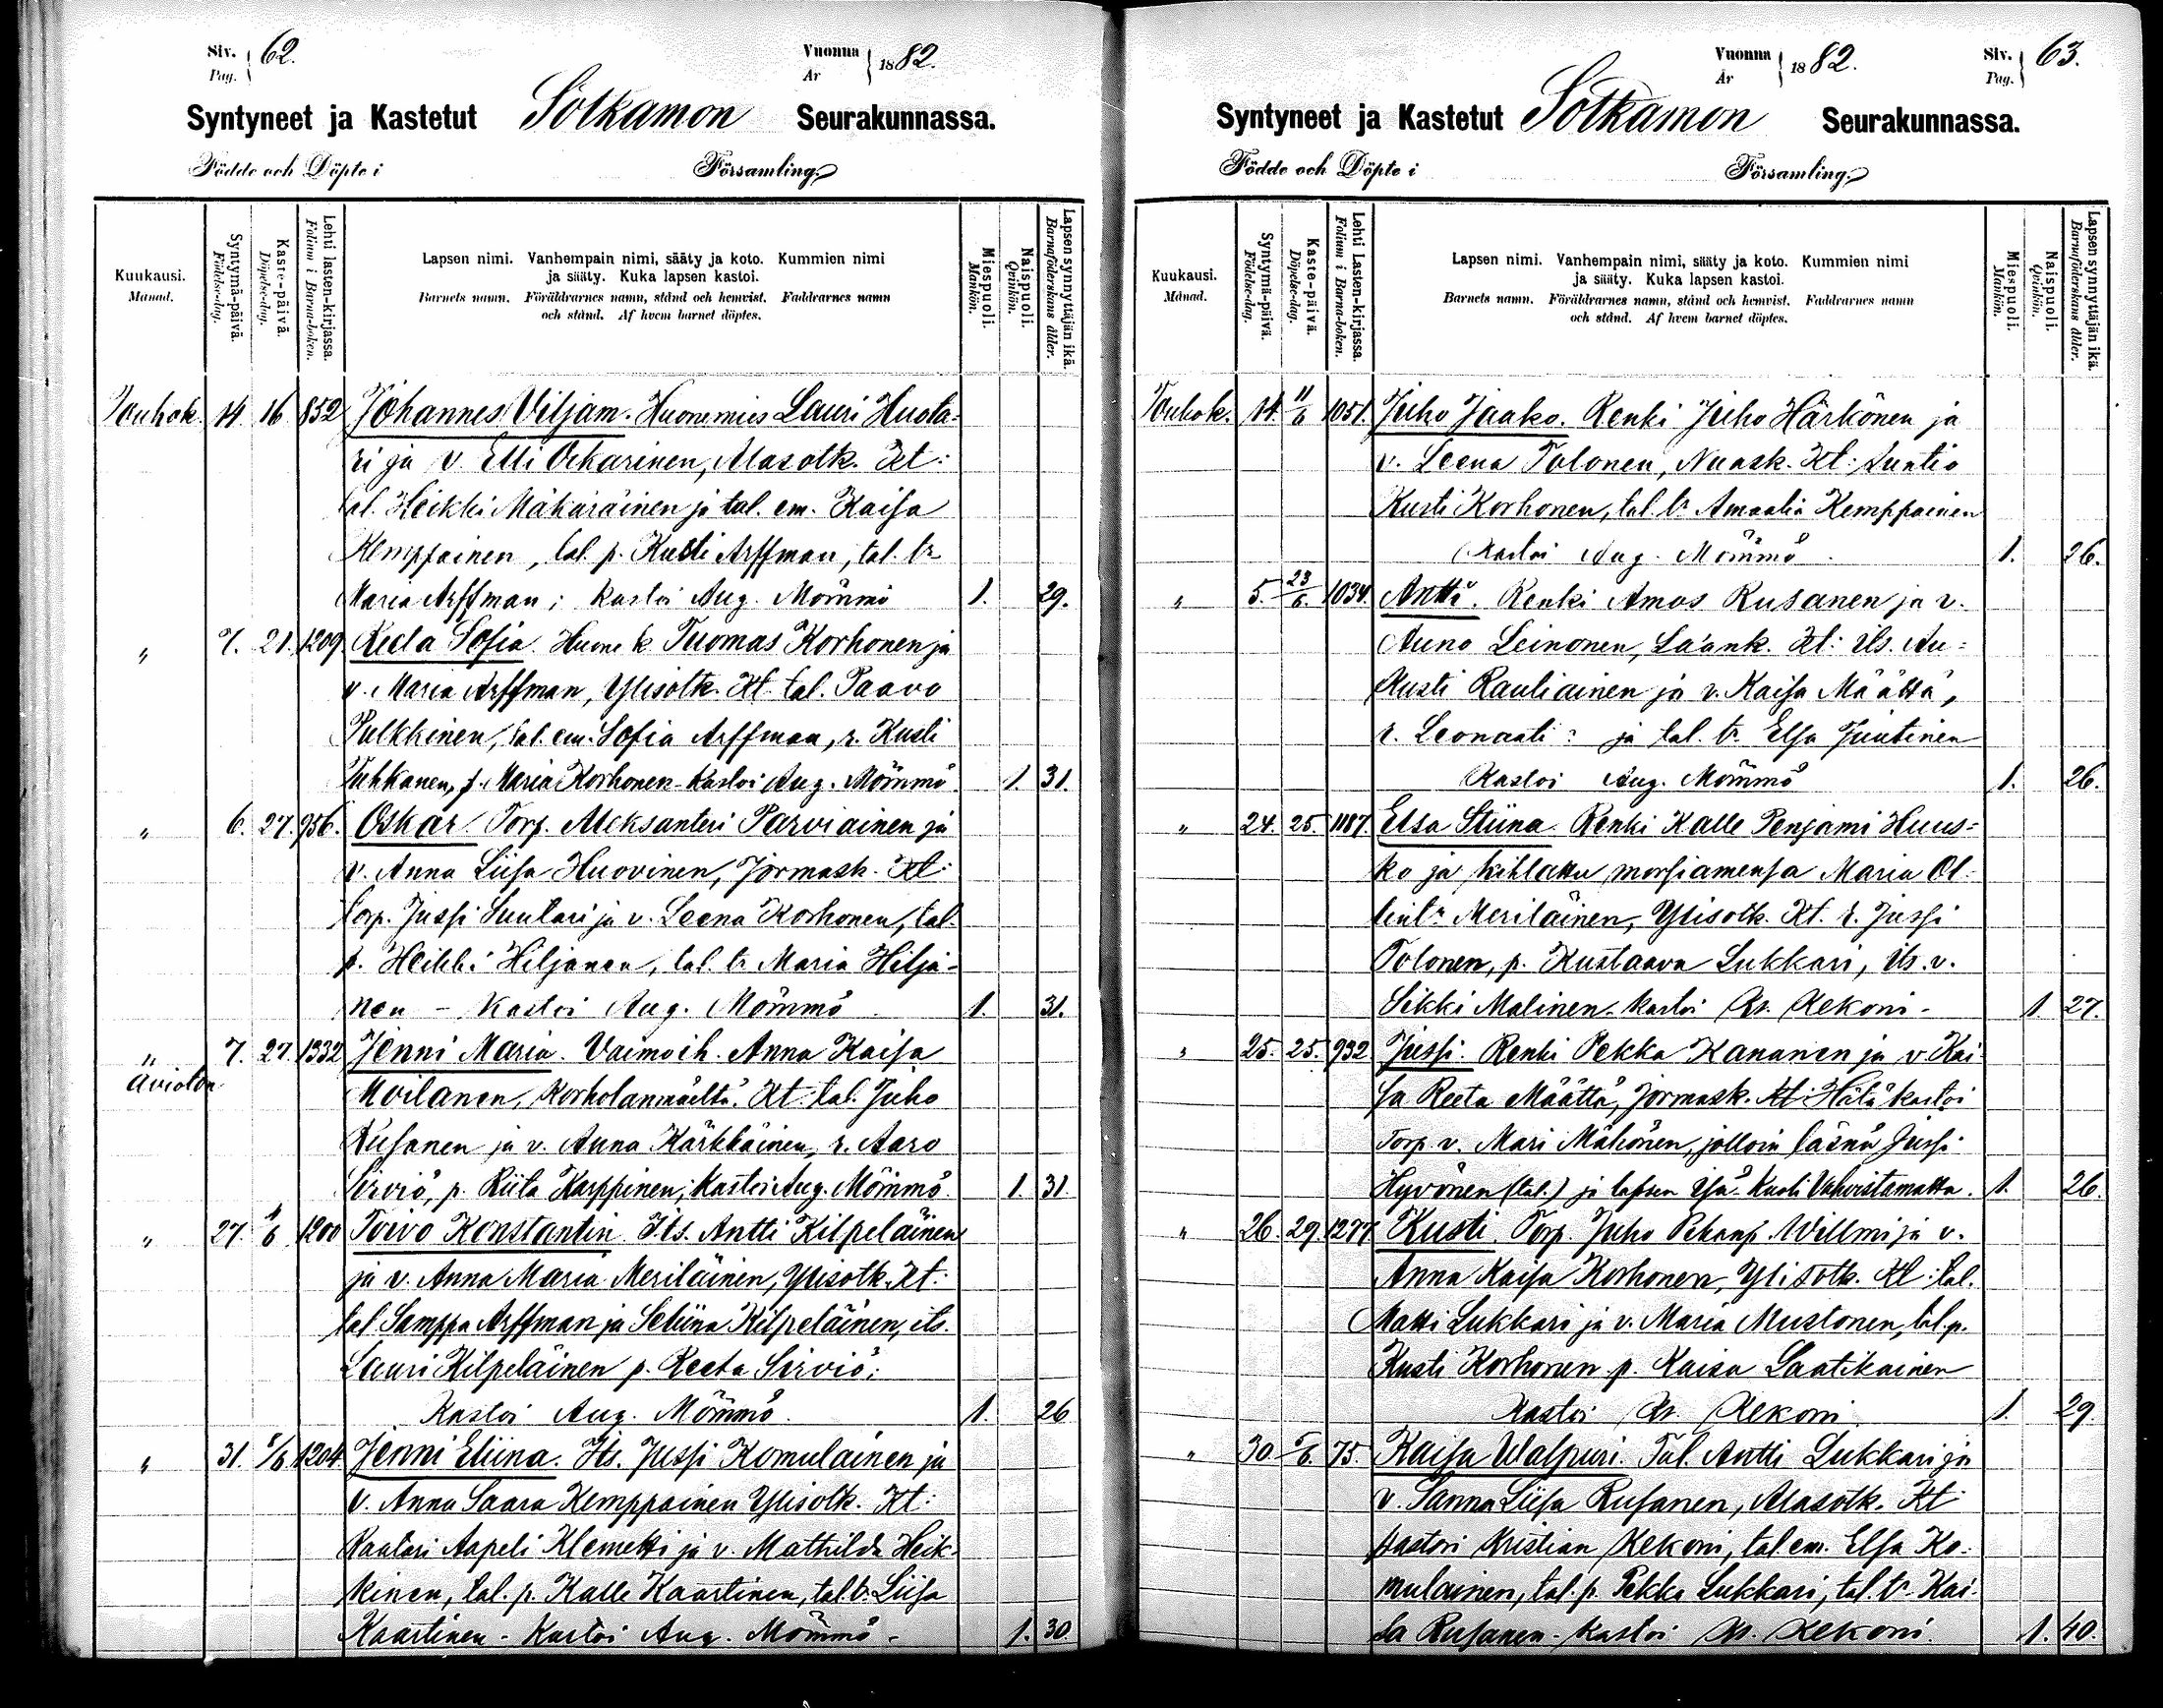 Siv. 62.
Pag.
Vuonna 1882.
År
Syntyneet ja Kastetut Sotkamon Seurakunnassa.
Födde och Döpte i Församling.
Kuukausi.
Månad.
Syntymä-päivä.
Födelse-dag.
Kaste-päivä.
Döpelse-dag.
Lehti lasten-kirjassa.
Folium i Barna-boken.
Lapsen nimi. Vanhempain nimi, sääty ja koto. Kummien nimi
ja sääty. Kuka lapsen kastoi.
Barnets namn. Föräldrarnes namn, stånd och hemvist. Faddrarnes namn
och stånd. Af hvem barnet döptes.
Miespuoli.
Mankön.
Naispuoli.
Qvinkön.
Lapsen synnyttäjän ikä.
Barnaföderskans ålder.
Touhok. 14. 16 852 Johannes Viljam. Huonemies Lauri Huota-
ri ja v. Elli Ockarinen, Alasotk. Kt:
tal. Heikki Mäkäräinen ja tal. em. Kaisa
Kemppainen, tal. p. Kusti Arffman, tal. tr
Maria Arffman; kastoi Aug. Mömmö 1. 29.
" 7. 21. 1209 Reeta Sofia. Huone k Tuomas Korhonen ja
v. Maria Arffman, Ylisotk. Kt. tal. Paavo
Pulkkinen, tal. em. Sofia Arffman, r. Kusti
Tuhkanen, p. Maria Korhonen - kastoi Aug. Mömmö. 1. 31.
" 6. 27. 956. Oskar. Torp. Aleksanteri Parviainen ja
v. Anna Liisa Huovinen, Jormask. Kt:
torp. Jussi Suutari ja v. Leena Korhonen, tal.
p. Heikki Hiljanen, tal. tr Maria Hilja-
nen - kastoi Aug. Mömmö. 1. 31.
" 7. 27. 1332 Jenni Maria. Vaimoih. Anna Kaisa
Avioton
Moilanen, Korholanmäeltä. Kt tal. Juho
Rusanen ja v. Anna Kärkkäinen, r. Aaro
Sirviö, p. Riita Karppinen; kastoi Aug. Mömmö. 1. 31.
" 27. 1/6 1200 Toivo Konstantin. Its. Antti Kilpeläinen
ja v. Anna Maria Meriläinen, Ylisotk. Kt:
tal. Samppa Arffman ja Seliina Kilpeläinen, its.
Lauri Kilpeläinen p. Reeta Sirviö:
Kastoi Aug. Mömmö. 1. 26
" 31. 8/6. 1204. Jenni Eliina. Its. Jussi Komulainen ja
v. Anna Saara Kemppainen Ylisotk. Kt:
Kanttori Aapeli Klemetti ja v. Mathilda Heik-
kinen, tal. p. Kalle Kaartinen, tal. tr. Liisa
Kaartinen - Kastoi Aug. Mömmö - 1. 30.
Vuonna 1882.
År
Siv. 63.
Pag.
Syntyneet ja Kastetut Sotkamon Seurakunnassa.
Födde och Döpte i Församling.
Kuukausi.
Månad.
Syntymä-päivä.
Födelse-dag.
Kaste-päivä.
Döpelse-dag.
Lehti Lasten-kirjassa.
Folium i Barna-boken.
Lapsen nimi. Vanhempain nimi, sääty ja koto. Kummien nimi
ja sääty. Kuka lapsen kastoi.
Barnets namn. Föräldrarnes namn, stånd och hemvist. Faddrarnes namn
och stånd. Af hvem barnet döptes.
Miespuoli.
Mankön.
Naispuoli.
Qvinkön.
Lapsen synnyttäjän ikä.
Barnaföderskans ålder.
Touhok. 14. 11/6 1051. Juho Jaako. Renki Juho Härkönen ja
v. Leena Tolonen, Nuask. Kt: Suntio
Kusti Korhonen, tal. tr Amaalia Kemppainen
Kastoi Aug. Mömmö. 1. 26.
" 5. 23/6. 1034. Antti. Renki Amos Rusanen ja v.
Auno Leinonen, Laank. Kt: its. Au-
kusti Rautiainen ja v. Kaisa Määttä,
r. Leonaati: ja tal. tr Elsa Juutinen
Kastoi Aug. Mömmö 1. 26.
" 24. 25. 1187. Elsa Stiina. Renki Kalle Penjami Huus-
ko ja kihlattu morsiamensa Maria Ol-
lintr Meriläinen, Ylisotk. Kt. r. Jussi
Tolonen, p. Kustaava Lukkari, its. v.
Sikki Malinen - kastoi Kr. Kekoni - 1. 27.
" 25. 25. 932 Jussi. Renki Pekka Kananen ja v. Kai-
sa Reeta Määttä, Jormask. Kt: Hätä kastoi
Torp. v. Mari Mähönen, jolloin läsnä Jussi
Hyvönen (tal.) ja lapsen Isä. Kuoli Vahvistamatta. 1. 26.
" 26. 29. 1277 Kusti. Torp. Juho Pekanp. Willmi ja v.
Anna Kaisa Korhonen, Ylisotk. Kt: tal.
Matti Lukkari ja v. Maria Mustonen, tal. p.
Kusti Korhonen p. Kaisa Laatikainen
Kastoi Kr. Kekoni. 1. 29.
" 30. 75. Kaisa Walpuri. Tal. Antti Lukkari ja
v. Sanna Liisa Rusanen, Alasotk. Kt:
pastori Kristian Kekoni, tal. em. Elsa Ko-
mulainen, tal. p. Pekka Lukkari, tal. tr Kai-
sa Rusanen - kastoi Kr. Kekoni. 1. 40.